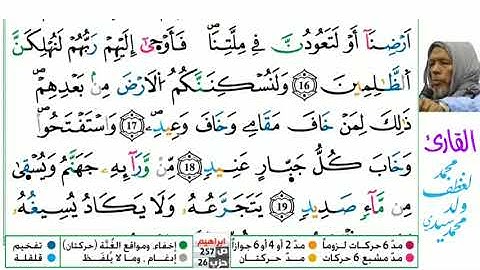 اَرْضِنَآ أَوْ لَتَعُودُنَّ فِے مِلَّتِنَا فَأَوْحَىٰٓ إِلَيْهِمْ رَبُّهُمْ لَنُهْلِكَنَّ
اَ۬لظَّٰلِمِينَ 16 وَلَنُسْكِنَنَّكُمُ اُ۬لَارْضَ مِنۢ بَعْدِهِمْ
ذَٰلِكَ لِمَنْ خَافَ مَقَامِے وَخَافَ وَعِيدِۦ 17 وَاسْتَفْتَحُواْ
وَخَابَ كُلُّ جَبّ۪ارٍ عَنِيدٖ 18 مِّنْ وَّرَآئِهِۦ جَهَنَّمُ وَيُسْقَىٰ
مِن مَّآءٖ صَدِيدٖ 19 يَتَجَرَّعُهُۥ وَلَا يَكَادُ يُسِيغُهُۥ
القارئ
محمد
لغظف
ولد
محمد سيدي
مدّ 6 حركات لزوماً مدّ 2 أو 4 أو 6 جوازاً
مدّ مشبع 6 حركات مدّ حركتان
إبراهيم
ص 257
حزب 26
إخفاء، ومواقع الغُنَّة (حركتان) تفخيم
إدغام، وما لا يُلفَظ قلقلة